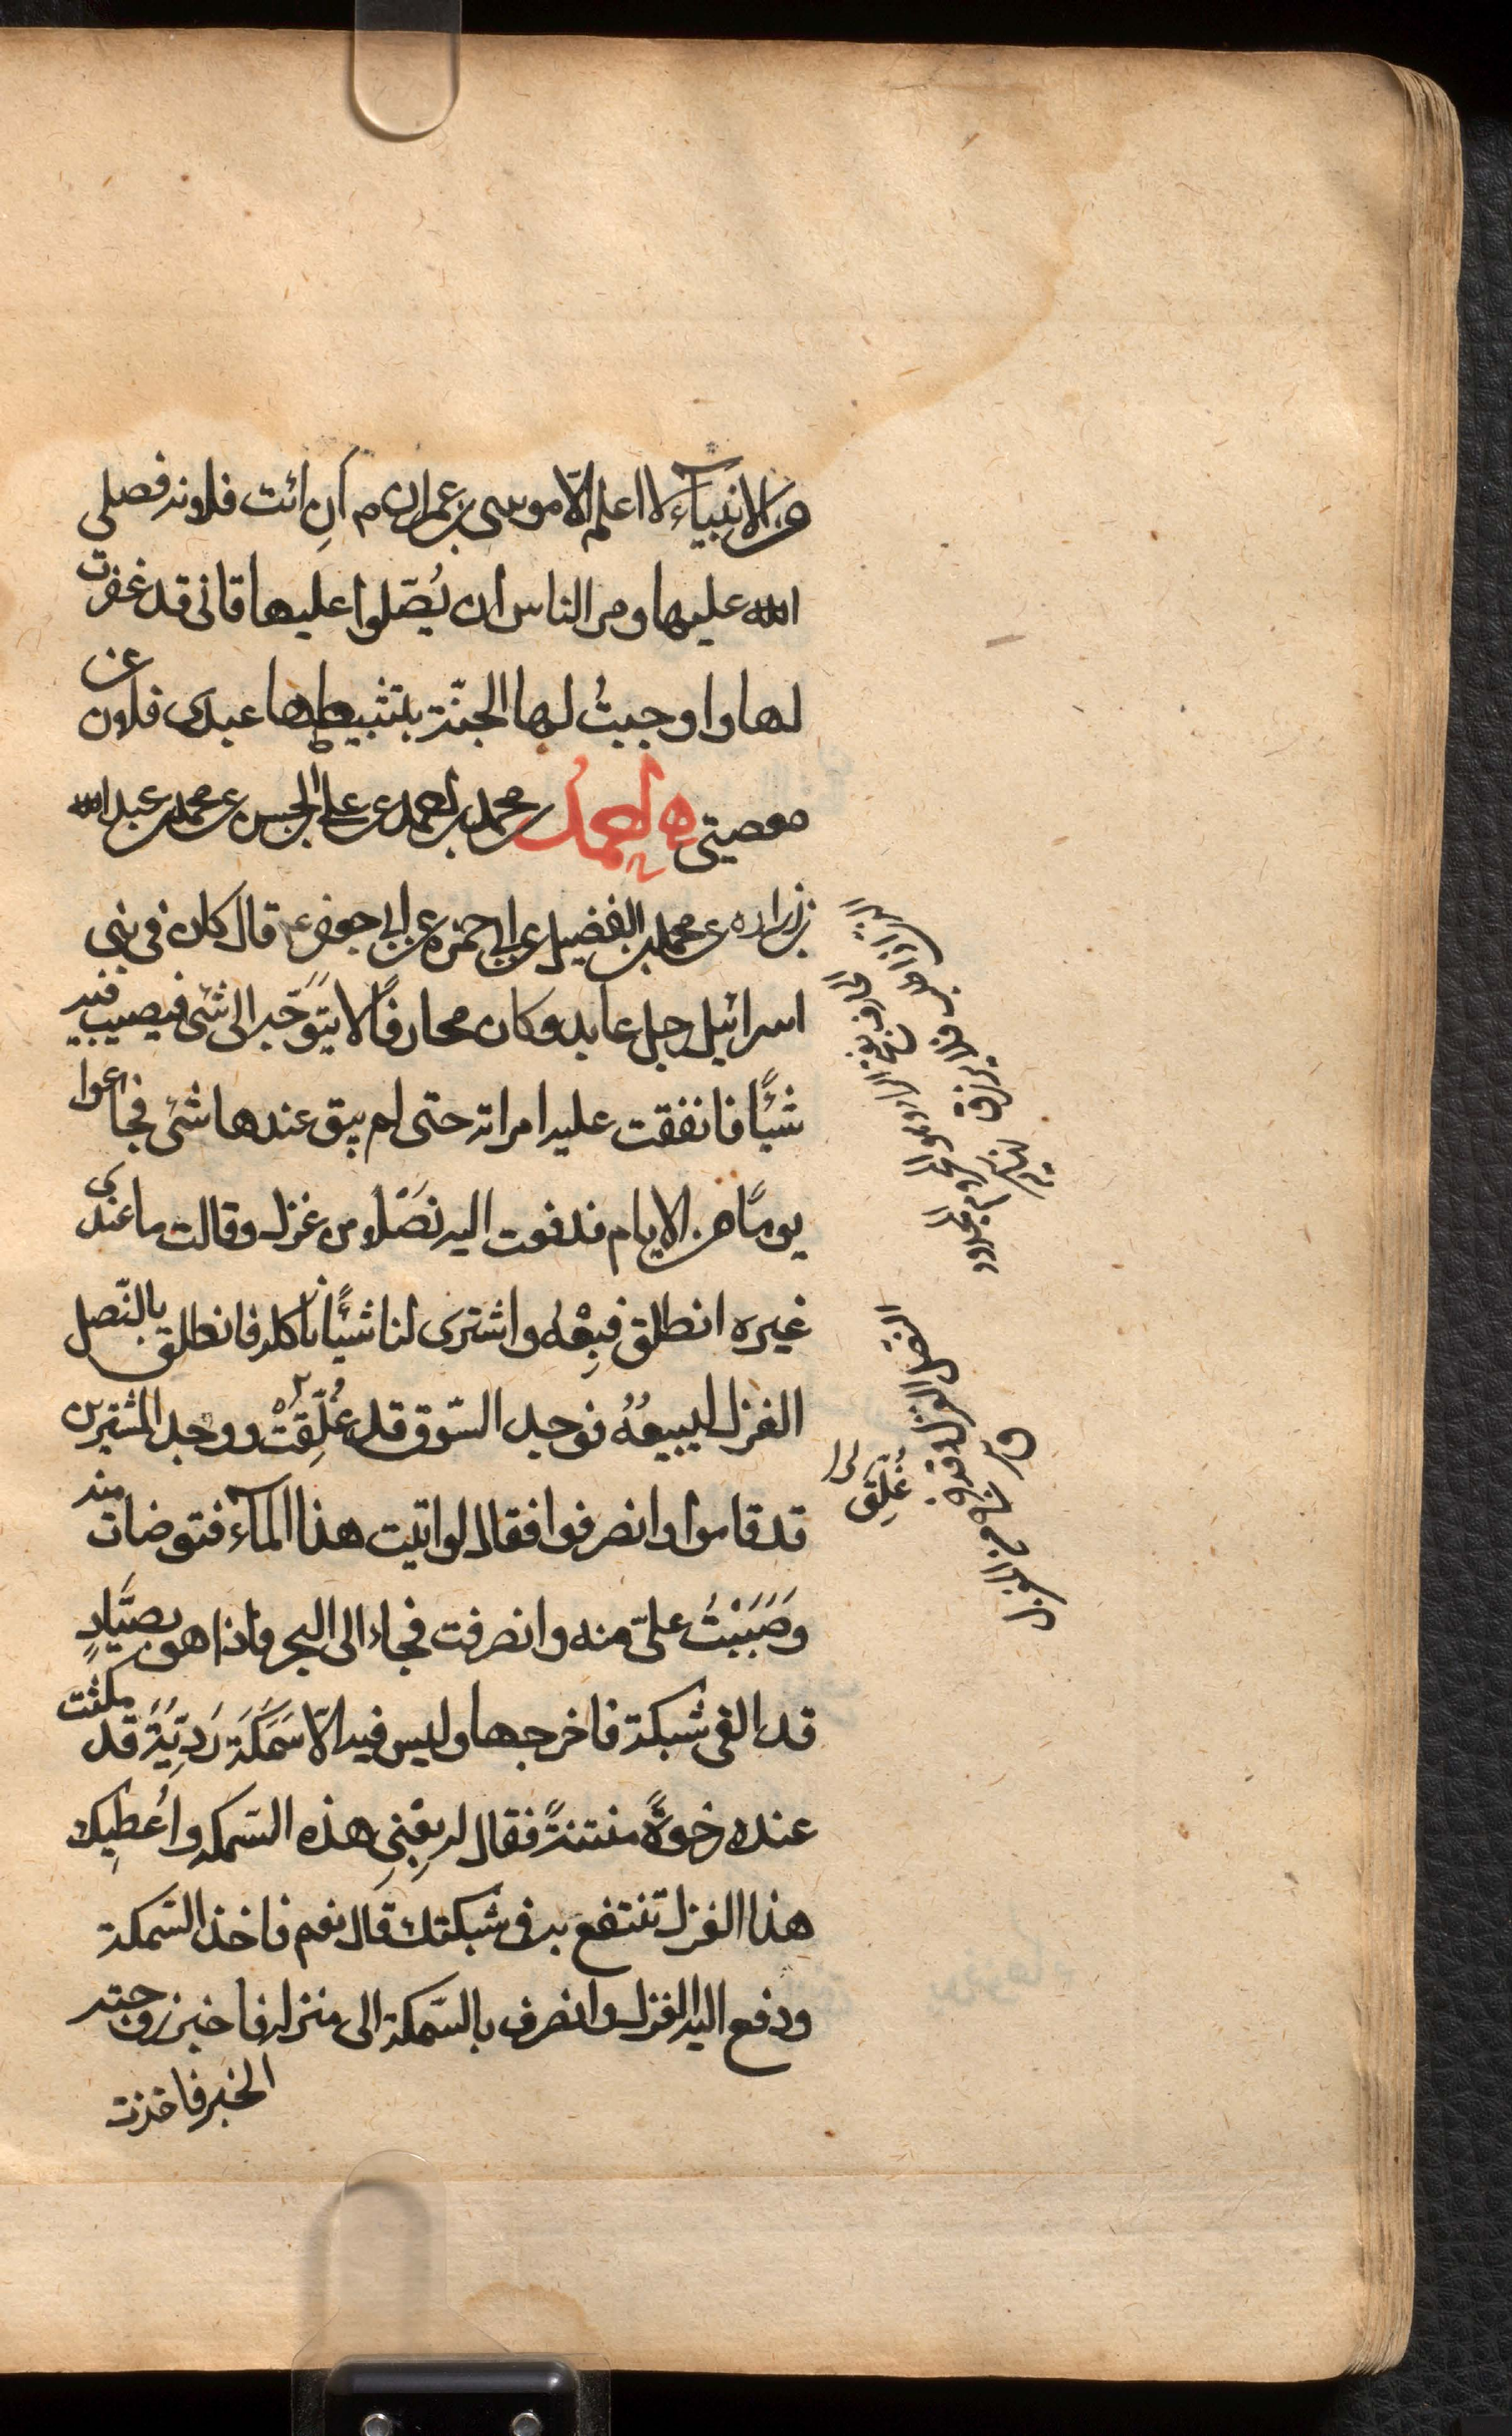 من الانبيآء لا اعلم الّا موسى بن عمران م أنِ ائت فلانه فصلى
الله عليها ومر الناس ان يُصّلوا عليها فانى قد غفرت
لها واوجبتُ لها الجنّة بتثبيطها عبدى فلان عن
معصيتى احمد بن محمد بن احمد عن على بن الحسن عن محمد بن عبد الله
بن زراره عن محمد بن الفضيل عن ابى حمزه عن ابى جعفر ع قال كان فى بنى
اسرائيل رجل عابد وكان محارفًا لا يتوَجّه الى شئ فيصيب فيه
شئًا فانفقت عليه امراته حتى لم يبق عندها شئ فجاعوا
يومًا من الايام فدفعت اليه نَصْلا من غزل وقالت ما عندى
غيره انطلق فبِعْهُ واشترى لنا شئًا ناكله فانطلق بالنّصل
الغزل ليبيعُهُ فوجد السّوق قد غُلِّقَتْ ووجد المشترين
قد قاموا وانصرفوا فقال لو اتيت هذا المآء فتوضات منه
وصَبَبْتُ علىّ منه وانصرفت فجاء الى البحر فاذا هو بصَيَّادٍ
قد القى شبكة فاخرجها وليس فيه الّا سَمَكَة رَدِيَّةً قد مكثت
عنده رخوةً منتنةً فقال له بِعْنِى هذه السّمكه واُعْطِيك
هذا الغزل تنتفع به فى شبكتك قال نعم فاخذ السّمكة
ودفع اليه الغزل وانصرف بالسّمكة الى منزله فاخبر زوجته
الخبر فاخذت
النصل الغزل وقد خرج من المغزل
ق
غُلِّقَ